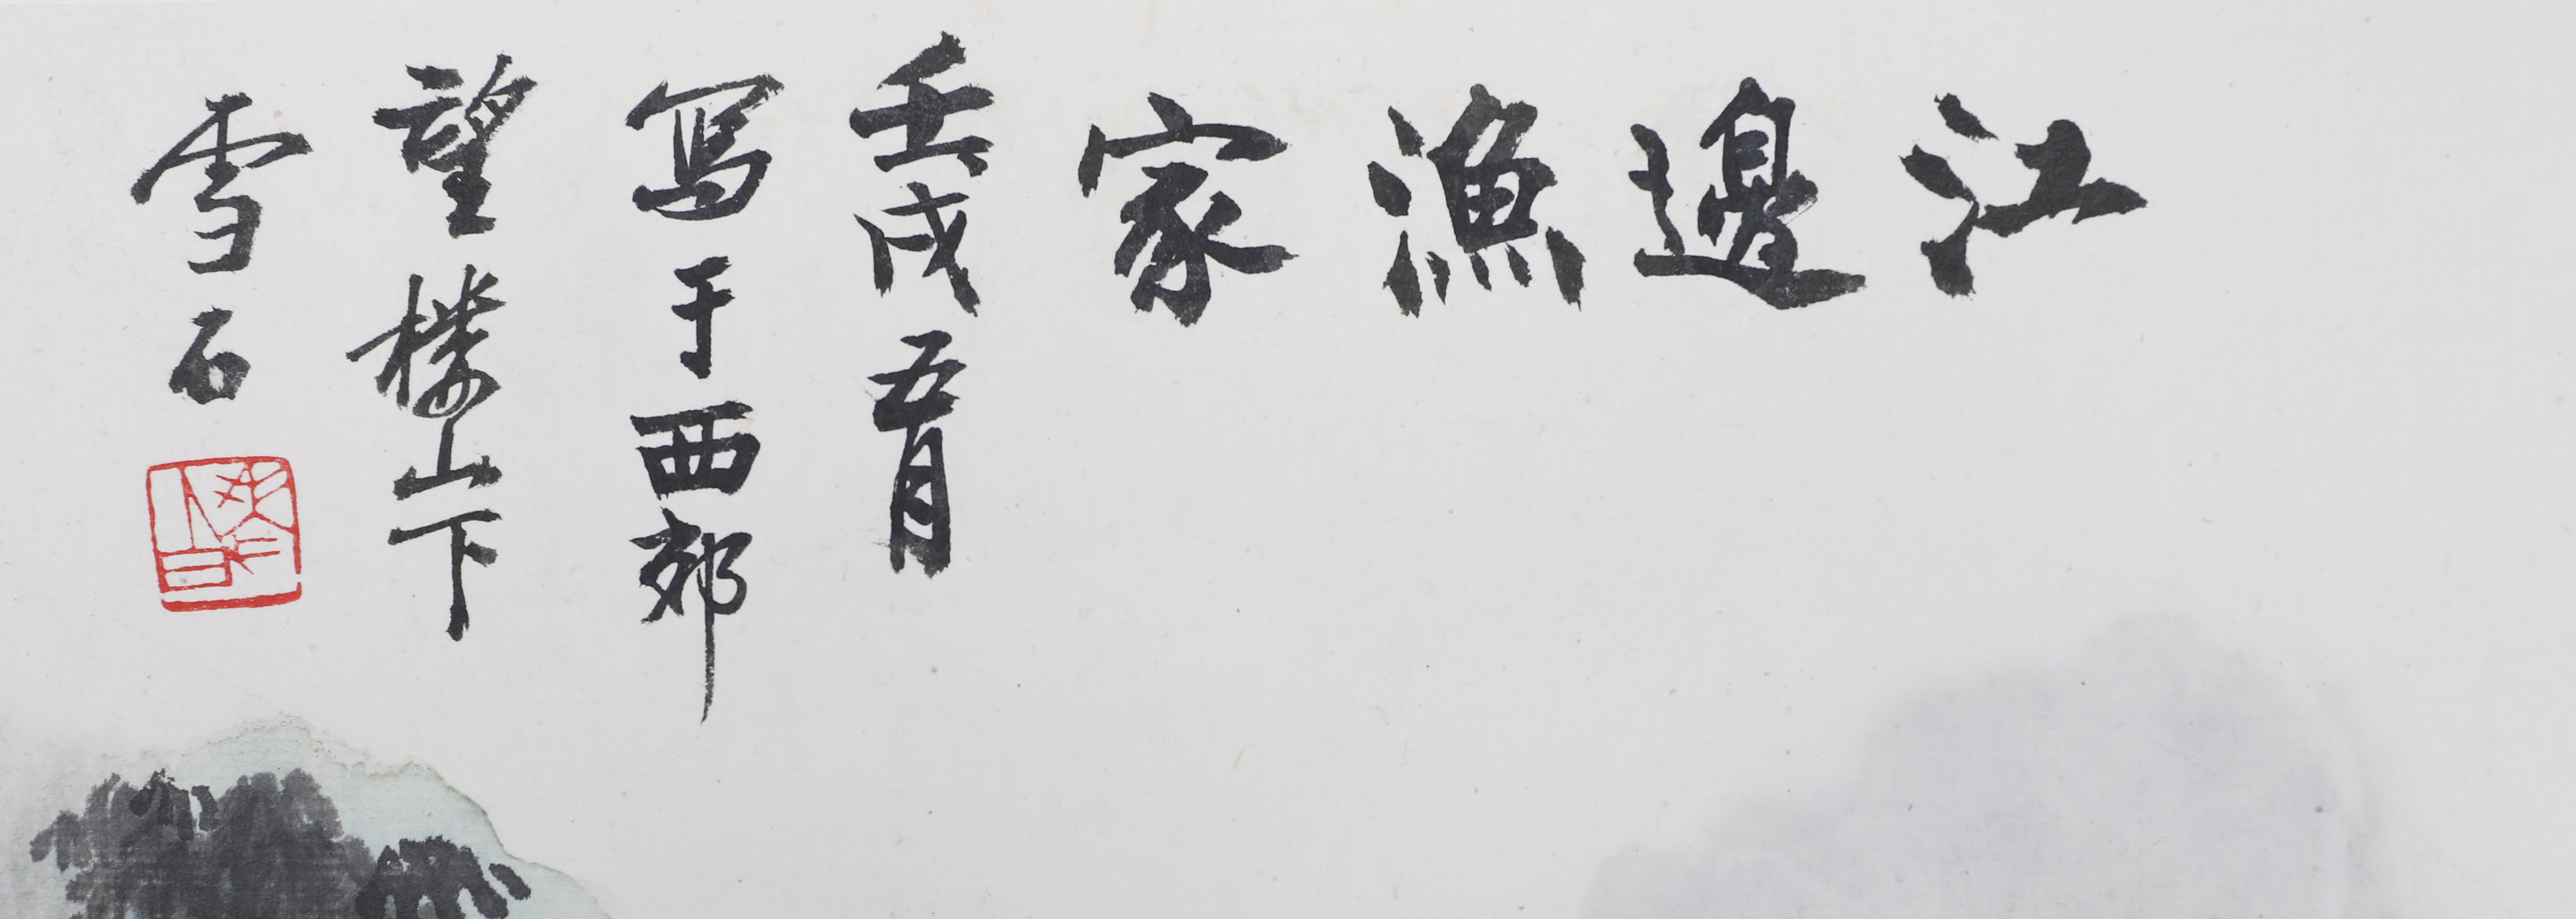 江邊漁家
壬戌五月
写于西郊
望楼山下
雪石